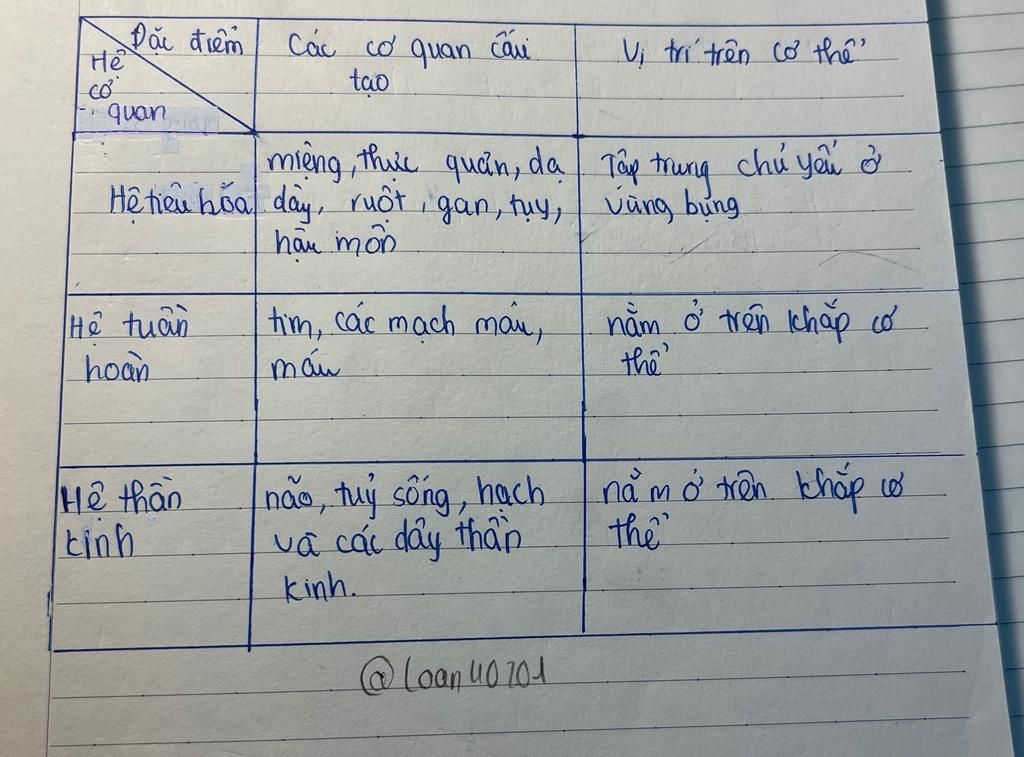 Đặc điểm
Hệ
cơ
quan
Các cơ quan cấu
tạo
Vị trí trên cơ thể
Hệ tiêu hóa
miệng, thực quản, dạ
dày, ruột, gan, tụy,
hậu môn
Tập trung chủ yếu ở
vùng bụng
Hệ tuần
hoàn
tim, các mạch máu,
máu
nằm ở trên khắp cơ
thể
Hệ thần
kinh
não, tuỷ sống, hạch
và các dây thần
kinh.
nằm ở trên khắp cơ
thể
@loan40701